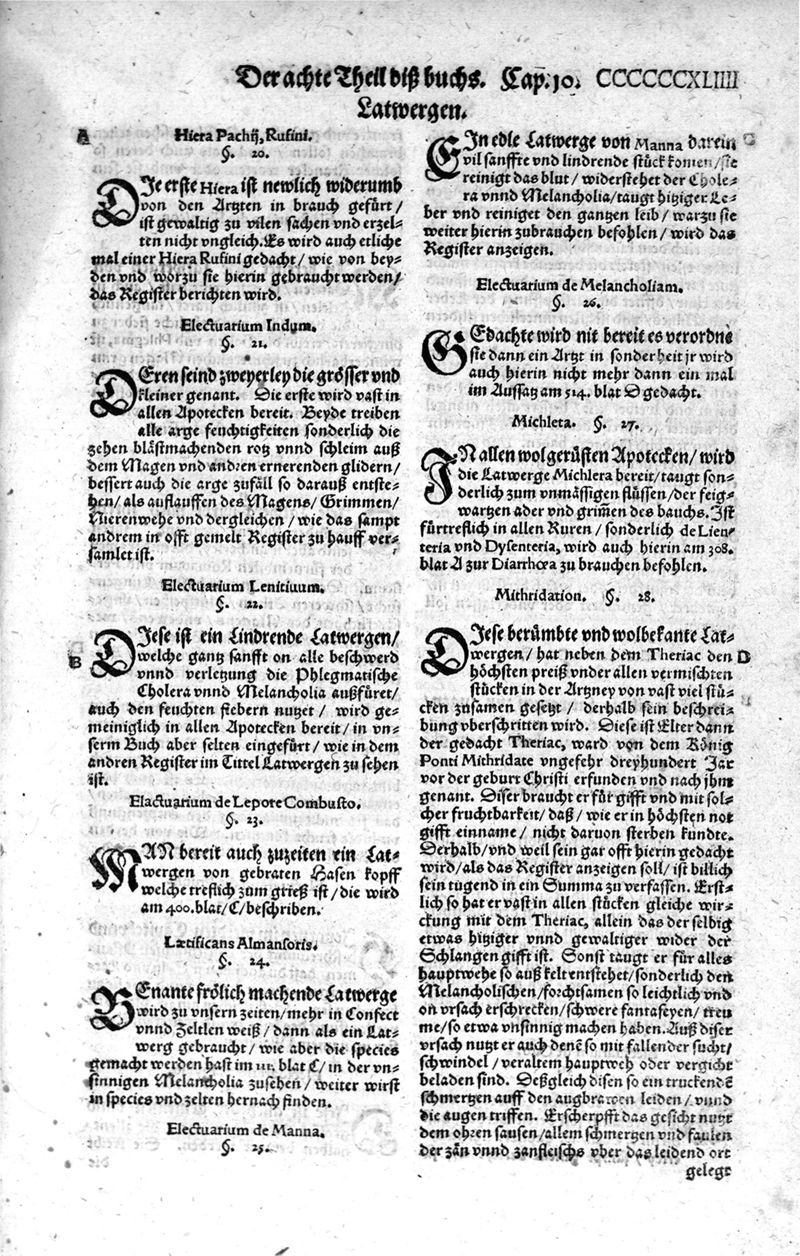 Der achte Theil diß buchs. Cap. 10. CCCCCCXLIIII
Latwergen.
A
Hiera Pachij, Rufini.
§. 20.
DIe erste Hiera ist newlich widerumb
von den Artzten in brauch gefürt/
ist gewaltig zu vilen sachen vnd erzel-
ten nicht vngleich. Es wird auch etliche
mal einer Hiera Rufini gedacht/ wie von bey-
den vnd worzu sie hierin gebraucht werden/
das Register berichten wird.
Electuarium Indum.
§. 21.
DEren seind zweyerley die grösser vnd
kleiner genant. Die erste wird vast in
allen Apotecken bereit. Beyde treiben
alle arge feuchtigkeiten sonderlich die
zehen blästmachenden rotz vnnd schleim auß
dem Magen vnd andren ernerenden glidern/
bessert auch die arge zufäll so darauß entste-
hen/ als aufflauffen des Magens/ Grimmen/
Nierenwehe vnd dergleichen/ wie das sampt
andrem in offt gemelt Register zu hauff ver-
samlet ist.
Electuarium Lenitiuum.
§. 22.
B
DIese ist ein Lindrende Latwergen/
welche gantz sanfft on alle beschwerd
vnnd verletzung die Phlegmatische
Cholera vnnd Melancholia außfüret/
auch den feuchten fiebern nutzet/ wird ge-
meiniglich in allen Apotecken bereit/ in vn-
serm Buch aber selten eingefürt/ wie in dem
andren Register im Tittel Latwergen zu sehen
ist.
Elactuarium de Lepore Combusto.
§. 23.
MAN bereit auch zuzeiten ein Lat-
wergen von gebraten Hasen kopff
welche treflich zum grieß ist/ die wird
am 400. blat/ C/ beschriben.
Lætificans Almansoris.
§. 24.
BEnante frölich machende Latwerge
wird zu vnsern zeiten/ mehr in Confect
vnnd Zeltlen weiß/ dann als ein Lat-
werg gebraucht/ wie aber die species
gemacht werden hast im 111. blat C/ in der vn-
sinnigen Melancholia zusehen/ weiter wirst
in species vnd zelten hernach finden.
Electuarium de Manna.
§. 25.
C
EIn edle Latwerge von Manna darein
vil sanffte vnd lindrende stück komen/ sie
reinigt das blut/ widerstehet der Chole-
ra vnnd Melancholia/ taugt hitziger Le-
ber vnd reiniget den gantzen leib/ warzu sie
weiter hierin zubrauchen befohlen/ wird das
Register anzeigen.
Electuarium de Melancholiam.
§. 26.
GEdachte wird nit bereit es verordne
sie dann ein Artzt in sonderheit jr wird
auch hierin nicht mehr dann ein mal
im Aussatz am 514. blat D gedacht.
Michleta. §. 27.
IN allen wolgerüsten Apotecken/ wird
die Latwerge Michlera bereit/ taugt son-
derlich zum vnmässigen flüssen/ der feig-
wartzen ader vnd grim̃en des bauchs. Ist
fürtreflich in allen Ruren/ sonderlich de Lien-
teria vnd Dysenteria, wird auch hierin am 308.
blat A zur Diarrhœa zu brauchen befohlen.
Mithridation. §. 28.
DIese berümbte vnd wolbekante Lat-
wergen/ hat neben dem Theriac den D
höchsten preiß vnder allen vermischten
stücken in der Artzney von vast viel stü-
cken zusamen gesetzt/ derhalb sein beschrei-
bung vberschritten wird. Diese ist Elter dann
der gedacht Theriac, ward von dem König
Ponti Mithridate vngefehr dreyhundert Jar
vor der geburt Christi erfunden vnd nach jhm
genant. Diser braucht er für gifft vnd mit sol-
cher fruchtbarkeit/ daß/ wie er in höchsten not
gifft einname/ nicht daruon sterben kundte.
Derhalb/ vnd weil sein gar offt hierin gedacht
wird/ als das Register anzeigen soll/ ist billich
sein tugend in ein Summa zu verfassen. Erst-
lich so hat er vast in allen stücken gleiche wir-
ckung mit dem Theriac, allein das der selbig
etwas hitziger vnnd gewaltiger wider der
Schlangen gifft ist. Sonst taugt er für alles
hauptwehe so auß kelt entstehet/ sonderlich den
Melancholischen/ forchtsamen so leichtlich vnd
on vrsach erschrecken/ schwere fantaseyen/ treu
me/ so etwa vnsinnig machen haben. Auß diser
vrsach nutzt er auch denẽ so mit fallender sucht/
schwindel/ veraltem hauptweh oder vergicht
beladen sind. Deßgleich disen so ein truckendẽ
schmertzen auff den augbrawen leiden/ vnnd
die augen triffen. Erscherpfft das gesicht nutzt
dem ohren sausen/ allem schmertzen vnd faulen
der zän vnnd zanfleischs vber das leidend ort
gelegt